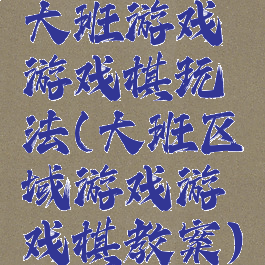 大班游戏
游戏棋玩
法(大班区
域游戏游
戏棋教案)